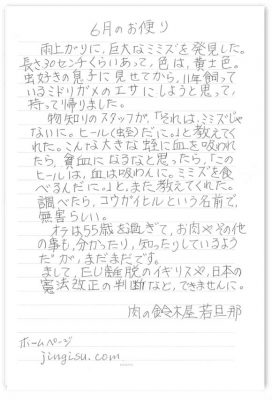 6月のお便り
雨上がりに、巨大なミミズを発見した。
長さ30センチくらいあって、色は、黄土色。
虫好きの息子に見せてから、11年飼って
いるミドリガメのエサにしようと思って、
持って帰りました。
物知りのスタッフが、「それは、ミミズじゃ
ないに。ヒール(蛭)だに。」と教えてく
れた。こんな大きな蛭に血を吸われ
たら、貧血になるなと思ったら、「この
ヒールは、血は吸わんに。ミミズを食
べるんだに。」と、また、教えてくれた。
調べたら、コウガイヒルという名前で、
無害らしい。
オラは55歳を過ぎて、お肉やその他
の事も、分かったり、知ったりしているよう
だが、まだまだです。
まして、EU離脱のイギリスや、日本の
憲法改正の判断など、できませんに。
肉の鈴木屋 若旦那
ホームページ
jingisu.com